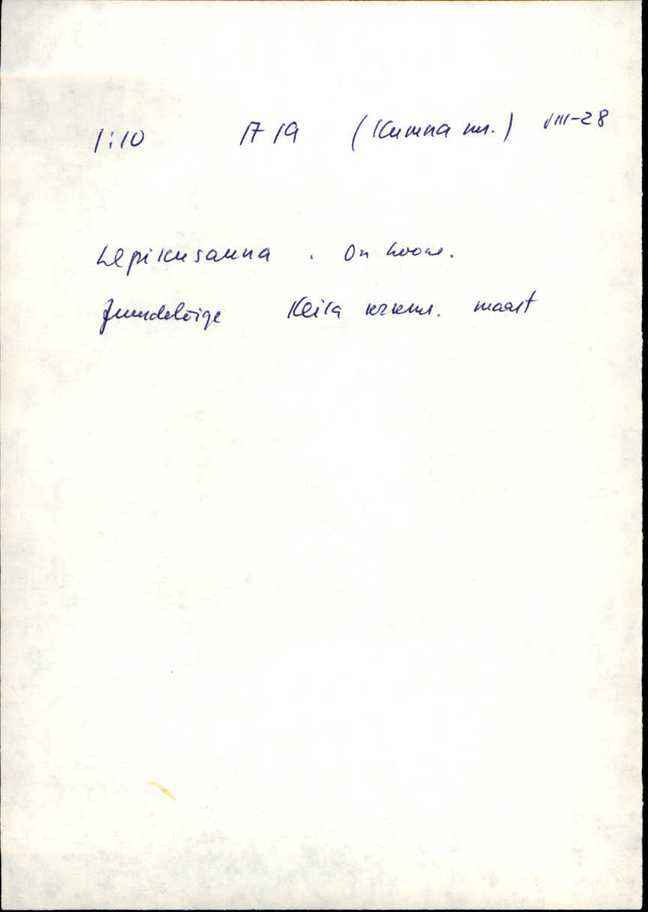 1:10 1719 (Kumna mr.) VIII-28
Lepikusauna . On hoone.
Juurdelõige Keila kirikum. maast